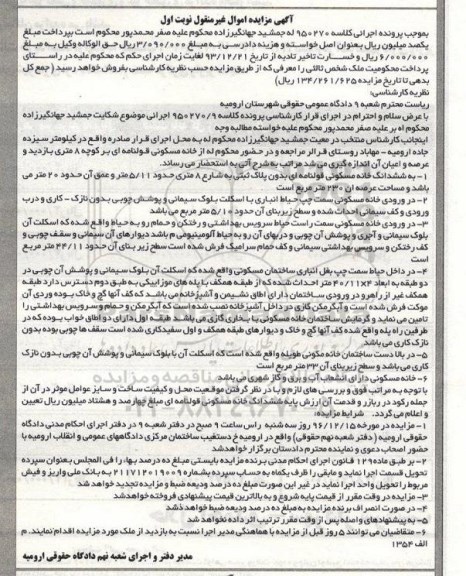 آگهی مزایده اموال غیرمنقول نوبت اول
بموجب پرونده اجرائی کلاسه ۹۵۰۲۷۰ له جمشید جهانگیرزاده محکوم علیه صفر محمدپور محکوم است بپرداخت مبلغ
یکصد میلیون ریال بعنوان اصل خواسته و هزینه دادرسی به مبلغ ۳/۰۹۰/۰۰۰ ریال حق الوکاله وکیل به مبلغ
۶/۰۰۰/۰۰۰ ریال و خسارت تاخیر تادیه از تاریخ ۹۳/۱۲/۲۱ لغایت زمان اجرای حکم که محکوم علیه در راستای
پرداخت محکومیت ملک شخص ثالثی را معرفی که از طریق مزایده حسب نظریه کارشناسی بفروش خواهد رسید (جمع کل
بدهی تا تاریخ مزایده ۱۳۴/۲۶۱/۶۲۵ ریال)
نظریه کارشناسی:
ریاست محترم شعبه ۹ دادگاه عمومی حقوقی شهرستان ارومیه
با عرض سلام و احترام در اجرای قرار کارشناسی پرونده کلاسه ۹۵۰۲۷۰/۹ اجرائی موضوع شکایت جمشید جهانگیرزاده
محکوم له بر علیه صفر محمدپور محکوم علیه خواسته مطالبه وجه
اینجانب کارشناس منتخب در معیت جمشید جهانگیرزاده محکوم له به محل اجرای قرار صادره واقع در کیلومتر سیزده
جاده ارومیه - مهاباد روستای قرالر مراجعه و در حضور محکوم له از خانه مسکونی قولنامه ای بر کوچه ۸ متری بازدید و
عرصه و اعیان آن اندازه گیری شد مراتب به شرح آتی به استحضار می رساند.
۱- به ششدانگ خانه مسکونی قولنامه ای بدون پلاک ثبتی به شارع ۸ متری حدود ۵/۱۱ متر و عمق آن حدود ۲۰ متر می
باشد و مساحت عرصه آن ۲۳۰ متر مربع است
۲- در ورودی خانه مسکونی سمت چپ حیاط انباری با اسکلت بلوک سیمانی و پوشش چوبی بدون نازک - کاری و درب
ورودی و کف سیمانی احداث شده و سطح زیر بنای آن حدود ۵/۱۰ متر مربع می باشد
۳- در ورودی خانه مسکونی سمت راست حیاط سرویس بهداشتی و رختکن و حمام رو به حیاط واقع شده که اسکلت آن
بلوک سیمانی و آجری و پوشش آن چوبی و دربهای آن رو به حیاط آلومینیومی م باشد دیوارهای آن سیمانی و سقف چوبی و
کف رختکن و سرویس بهداشتی سیمانی و کف حمام سرامیک فرش شده است سطح زیر بنای آن حدود ۴۴/۱۱ متر مربع
است
۴- در داخل حیاط سمت چپ بغل انباری ساختمان مسکونی واقع شده که اسکلت آن بلوک سیمانی و پوشش آن چوبی در
دو طبقه به ابعاد ۴۰/۱۱x۴ متر احداث شده که از طبقه همکف با پله های موزاییکی به طبق دوم دسترس دارد طبقه
همکف غیر از راهرو در ورودی ساختمان دارای اطاق نشیمن و آشپزخانه می باشد که کف آنها گچ و خاک بوده و روی آن
موکت فرش شده است و آبگرمکن گازی در داخل آشپزخانه نصب شده است که آبگرمکن و حمام و سرویس بهداشتی را
تامین می نماید و گرمایش ساختمان خانه مسکونی با بخاری گازی می باشد طبقه اول دارای دو اطاق خواب بوده که در
طرفین راه پله واقع شده کف آنها گچ و خاک و دیوارهای طبقه همکف و اول سفیدکاری شده است سقف ها چوبی بوده بدون
نازک کاری می باشد
۵- در بالا دست ساختمان خانه مسکونی طویله واقع شده است که اسکلت آن با بلوک سیمانی و پوشش آن چوبی بدون نازک
کاری می باشد و سطح زیر بنای آن ۳۳ متر مربع است
۶- خانه مسکونی دارای انشعاب آب و برق و گاز شهری می باشد
با توجه به مراتب فوق و بررسی های لازم و با در نظر گرفتن موقعیت محل و کیفیت ساخت و سایر عوامل موثر در آن از
جمله رکود در بازار و قدمت آن ارزش پایه ششدانگ خانه مسکونی قولنامه ای مبلغ چهارصد و هشتاد میلیون ریال تعیین
و اعلام می گردد. شرایط مزایده:
۱- مزایده در مورخه ۹۶/۱۲/۱۵ روز سه شنبه راس ساعت ۹ صبح در دفتر شعبه ۹ در دفتر اجرای احکام مدنی دادگاه
حقوقی ارومیه (دفتر شعبه نهم حقوقی) واقع در ارومیه خ دستغیب ساختمان مرکزی دادگاههای عمومی و انقلاب ارومیه با
حضور اصحاب دعوی و نماینده محترم دادستان برگزار خواهد شد
۲- بر طبق ماده ۱۲۹ قانون اجرای احکام مدنی برنده مزایده بایستی مبلغ ده درصد بها، را فی المجلس بعنوان سپرده
تحویل قسمت اجرا نماید و مابقی را ظرف یکماه به حساب سپرده بشماره ۲۱۱۷۱۲۰۱۹۰۰۹ به بانک ملی واریز و فیش
مربوط را تحویل واحد اجرا نماید در غیر این صورت مبلغ ده درصد ودیعه ضبط و مزایده تجدید خواهد شد
۳- مزایده در وقت مقرر از قیمت پایه شروع و به بالاترین قیمت پیشنهادی فروخته خواهد شد
۴- در صورت انصراف برنده مزایده به مبلغ ده درصد ودیعه ضبط خواهد شد
۵- به پیشنهادهای واصله پس از وقت مقرر ترتیب اثر داده نخواهد شد
۶- متقاضیان می توانند ۵ روز قبل از مزایده با هماهنگی مدیر اجرا نسبت به بازدید از ملک مورد مزایده اقدام نمایند. م
الف ۱۳۵۴
مدیر دفتر و اجرای شعبه نهم دادگاه حقوقی ارومیه